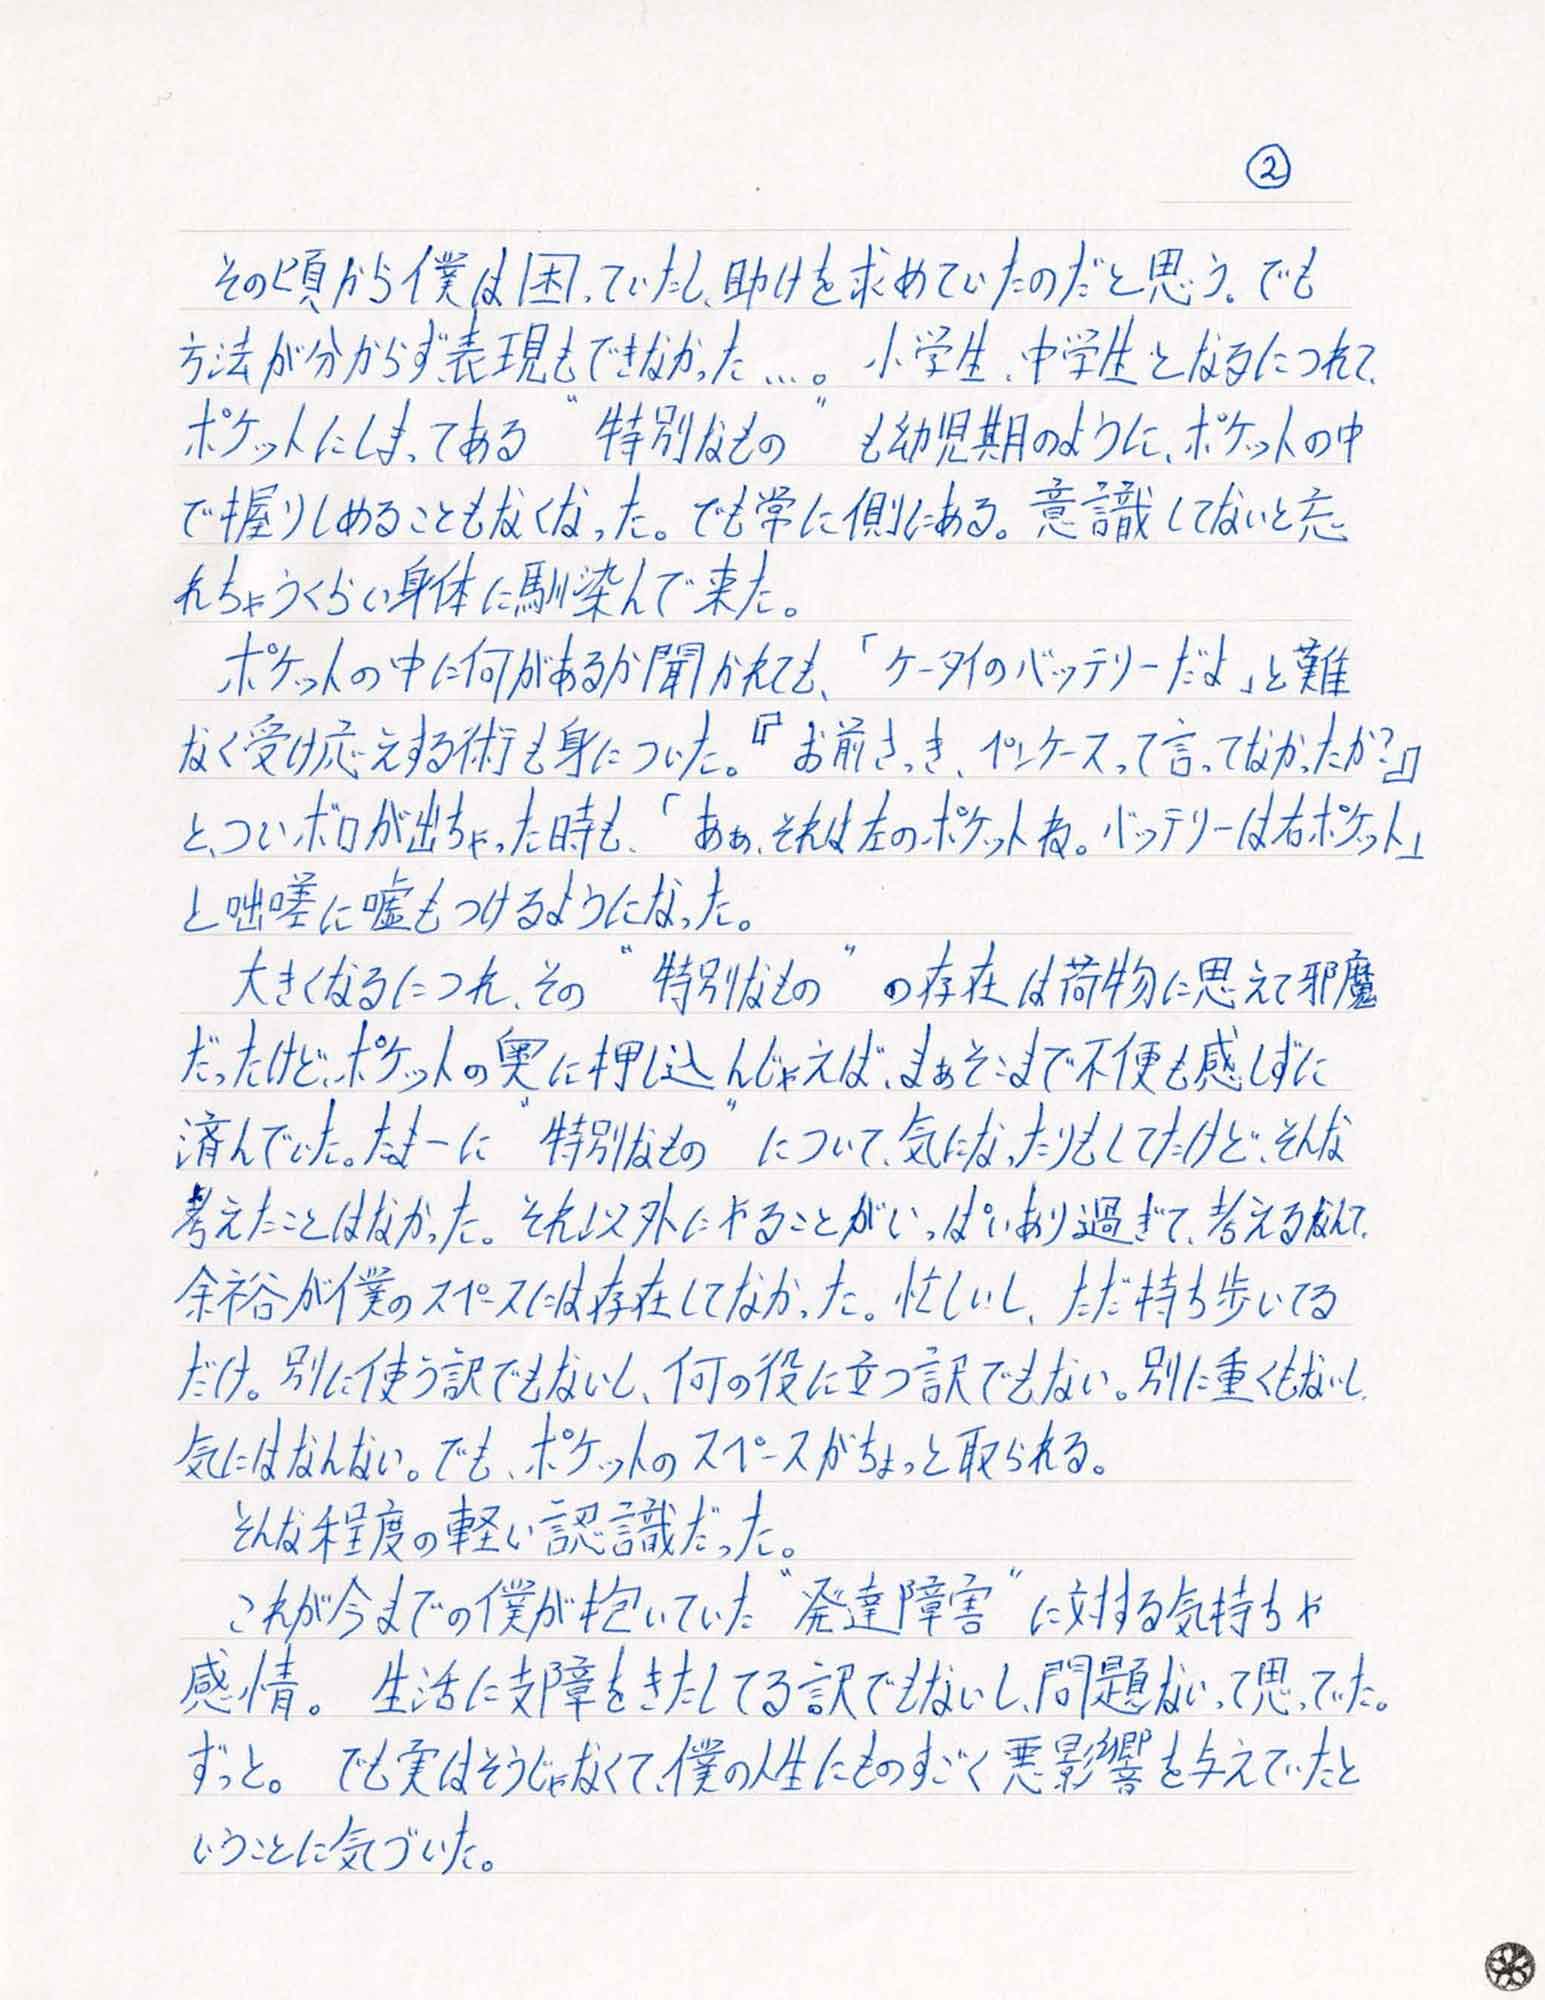 ②
その頃から僕は困っていたし、助けを求めていたのだと思う。でも
方法が分からず、表現もできなかった…。 小学生、中学生となるにつれて、
ポケットにしまってある “特別なもの” も幼児期のように、ポケットの中
で握りしめることもなくなった。でも常に側にある。意識してないと忘
れちゃうくらい身体に馴染んで来た。
ポケットの中に何があるか聞かれても、「ケータイのバッテリーだよ」と難
なく受け応えする術も身についた。『お前さっき、ペンケースって言ってなかったか?』
と、ついボロが出ちゃった時も、「あぁ、それは左のポケットね。バッテリーは右ポケット」
と咄嗟に嘘もつけるようになった。
大きくなるにつれ、その “特別なもの” の存在は荷物に思えて邪魔
だったけど、ポケットの奥に押し込んじゃえば、まぁそこまで不便も感じずに
済んでいた。たまーに “特別なもの” について、気になったりもしてたけど、そんな
考えたことはなかった。それ以外にやることがいっぱいあり過ぎて、考えるなんて、
余裕が僕のスペースには存在してなかった。忙しいし、ただ持ち歩いてる
だけ。別に使う訳でもないし、何の役に立つ訳でもない。別に重くもないし、
気にはなんない。でも、ポケットのスペースがちょっと取られる。
そんな程度の軽い認識だった。
これが今までの僕が抱いていた “発達障害” に対する気持ちや
感情。 生活に支障をきたしてる訳でもないし、問題ないって思っていた。
ずっと。 でも実はそうじゃなくて、僕の人生にものすごく悪影響を与えていたと
いうことに気づいた。